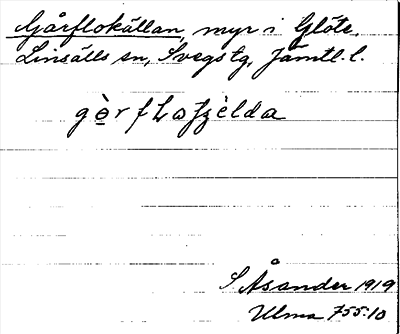 Gårflokällan, myr i Glöte,
Linsälls sn, Svegs tg, Jämtl. l.
gè̱rfLoʃzèlda
S Åsander 1919
Ulma 755:10